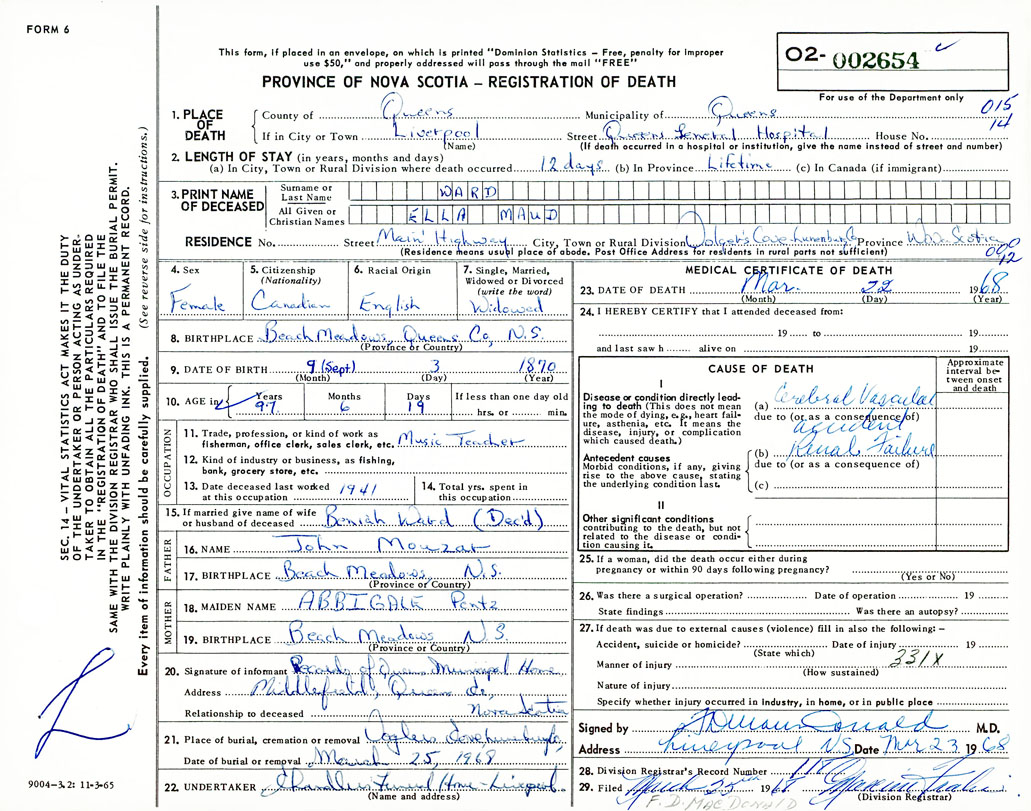 FORM 6
This form, if placed in an envelope, on which is printed "Dominion Statistics – Free, penalty for improper
use $50," and properly addressed will pass through the mail "FREE"
PROVINCE OF NOVA SCOTIA – REGISTRATION OF DEATH
O2- 002654
For use of the Department only
015
14
1. PLACE OF DEATH County of Queens Municipality of Queens
If in City or Town Liverpool Street Queens General Hospital House No.
(Name) (If death occurred in a hospital or institution, give the name instead of street and number)
2. LENGTH OF STAY (in years, months and days)
(a) In City, Town or Rural Division where death occurred 12 days (b) In Province Lifetime (c) In Canada (if immigrant)
3. PRINT NAME OF DECEASED Surname or Last Name WARD
All Given or Christian Names ELLA MAUD
RESIDENCE No. Street Main Highway City, Town or Rural Division Cove Lunenburg Co Province Nova Scotia
(Residence means usual place of abode. Post Office Address for residents in rural parts not sufficient)
4. Sex Female
5. Citizenship (Nationality) Canadian
6. Racial Origin English
7. Single, Married, Widowed or Divorced (write the word) Widowed
8. BIRTHPLACE Beach Meadows, Queens Co, N.S.
(Province or Country)
9. DATE OF BIRTH 9 (Sept) 3 1870
(Month) (Day) (Year)
10. AGE in Years 97 Months 6 Days 19 If less than one day old
hrs. or min.
OCCUPATION
11. Trade, profession, or kind of work as Music Teacher
fisherman, office clerk, sales clerk, etc.
12. Kind of industry or business, as fishing,
bank, grocery store, etc.
13. Date deceased last worked at this occupation 1941
14. Total yrs. spent in this occupation
15. If married give name of wife or husband of deceased Beniah Ward (Dec'd)
FATHER
16. NAME John Mouzar
17. BIRTHPLACE Beach Meadows, N.S.
(Province or Country)
MOTHER
18. MAIDEN NAME ABBIGALE Pentz
19. BIRTHPLACE Beach Meadows N.S.
(Province or Country)
20. Signature of informant Records of Queens Municipal Home
Address Middlefield, Queens Co,
Relationship to deceased Nova Scotia
21. Place of burial, cremation or removal
Date of burial or removal March 25, 1968
22. UNDERTAKER Chandlers Funeral Home - Liverpool
(Name and address)
MEDICAL CERTIFICATE OF DEATH
000
12
23. DATE OF DEATH Mar. 22 1968
(Month) (Day) (Year)
24. I HEREBY CERTIFY that I attended deceased from:
19 to 19
and last saw h alive on 19
CAUSE OF DEATH
Approximate interval between onset and death
I
Disease or condition directly lead-
ing to death (This does not mean
the mode of dying, e.g., heart fail-
ure, asthenia, etc. It means the
disease, injury, or complication
which caused death.)
(a) Cerebral Vascular
due to (or as a consequence of)
accident
Antecedent causes
Morbid conditions, if any, giving
rise to the above cause, stating
the underlying condition last.
(b) Renal Failure
due to (or as a consequence of)
(c)
II
Other significant conditions
contributing to the death, but not
related to the disease or condi-
tion causing it.
25. If a woman, did the death occur either during
pregnancy or within 90 days following pregnancy?
(Yes or No)
26. Was there a surgical operation? Date of operation 19
State findings Was there an autopsy?
27. If death was due to external causes (violence) fill in also the following: –
Accident, suicide or homicide? Date of injury 19
(State which)
Manner of injury 331X
(How sustained)
Nature of injury
Specify whether injury occurred in industry, in home, or in public place
Signed by M.D.
Address Liverpool NS Date Mar 23 1968
28. Division Registrar's Record Number
29. Filed March 25 1968
(Division Registrar)
F. D. MACDONALD
SEC. 14 – VITAL STATISTICS ACT MAKES IT THE DUTY
OF THE UNDERTAKER OR PERSON ACTING AS UNDER-
TAKER TO OBTAIN ALL THE PARTICULARS REQUIRED
IN THE "REGISTRATION OF DEATH" AND TO FILE THE
SAME WITH THE DIVISION REGISTRAR WHO SHALL ISSUE THE BURIAL PERMIT.
WRITE PLAINLY WITH UNFADING INK. THIS IS A PERMANENT RECORD.
Every item of information should be carefully supplied. (See reverse side for instructions.)
9004-3.2: 11-3-65